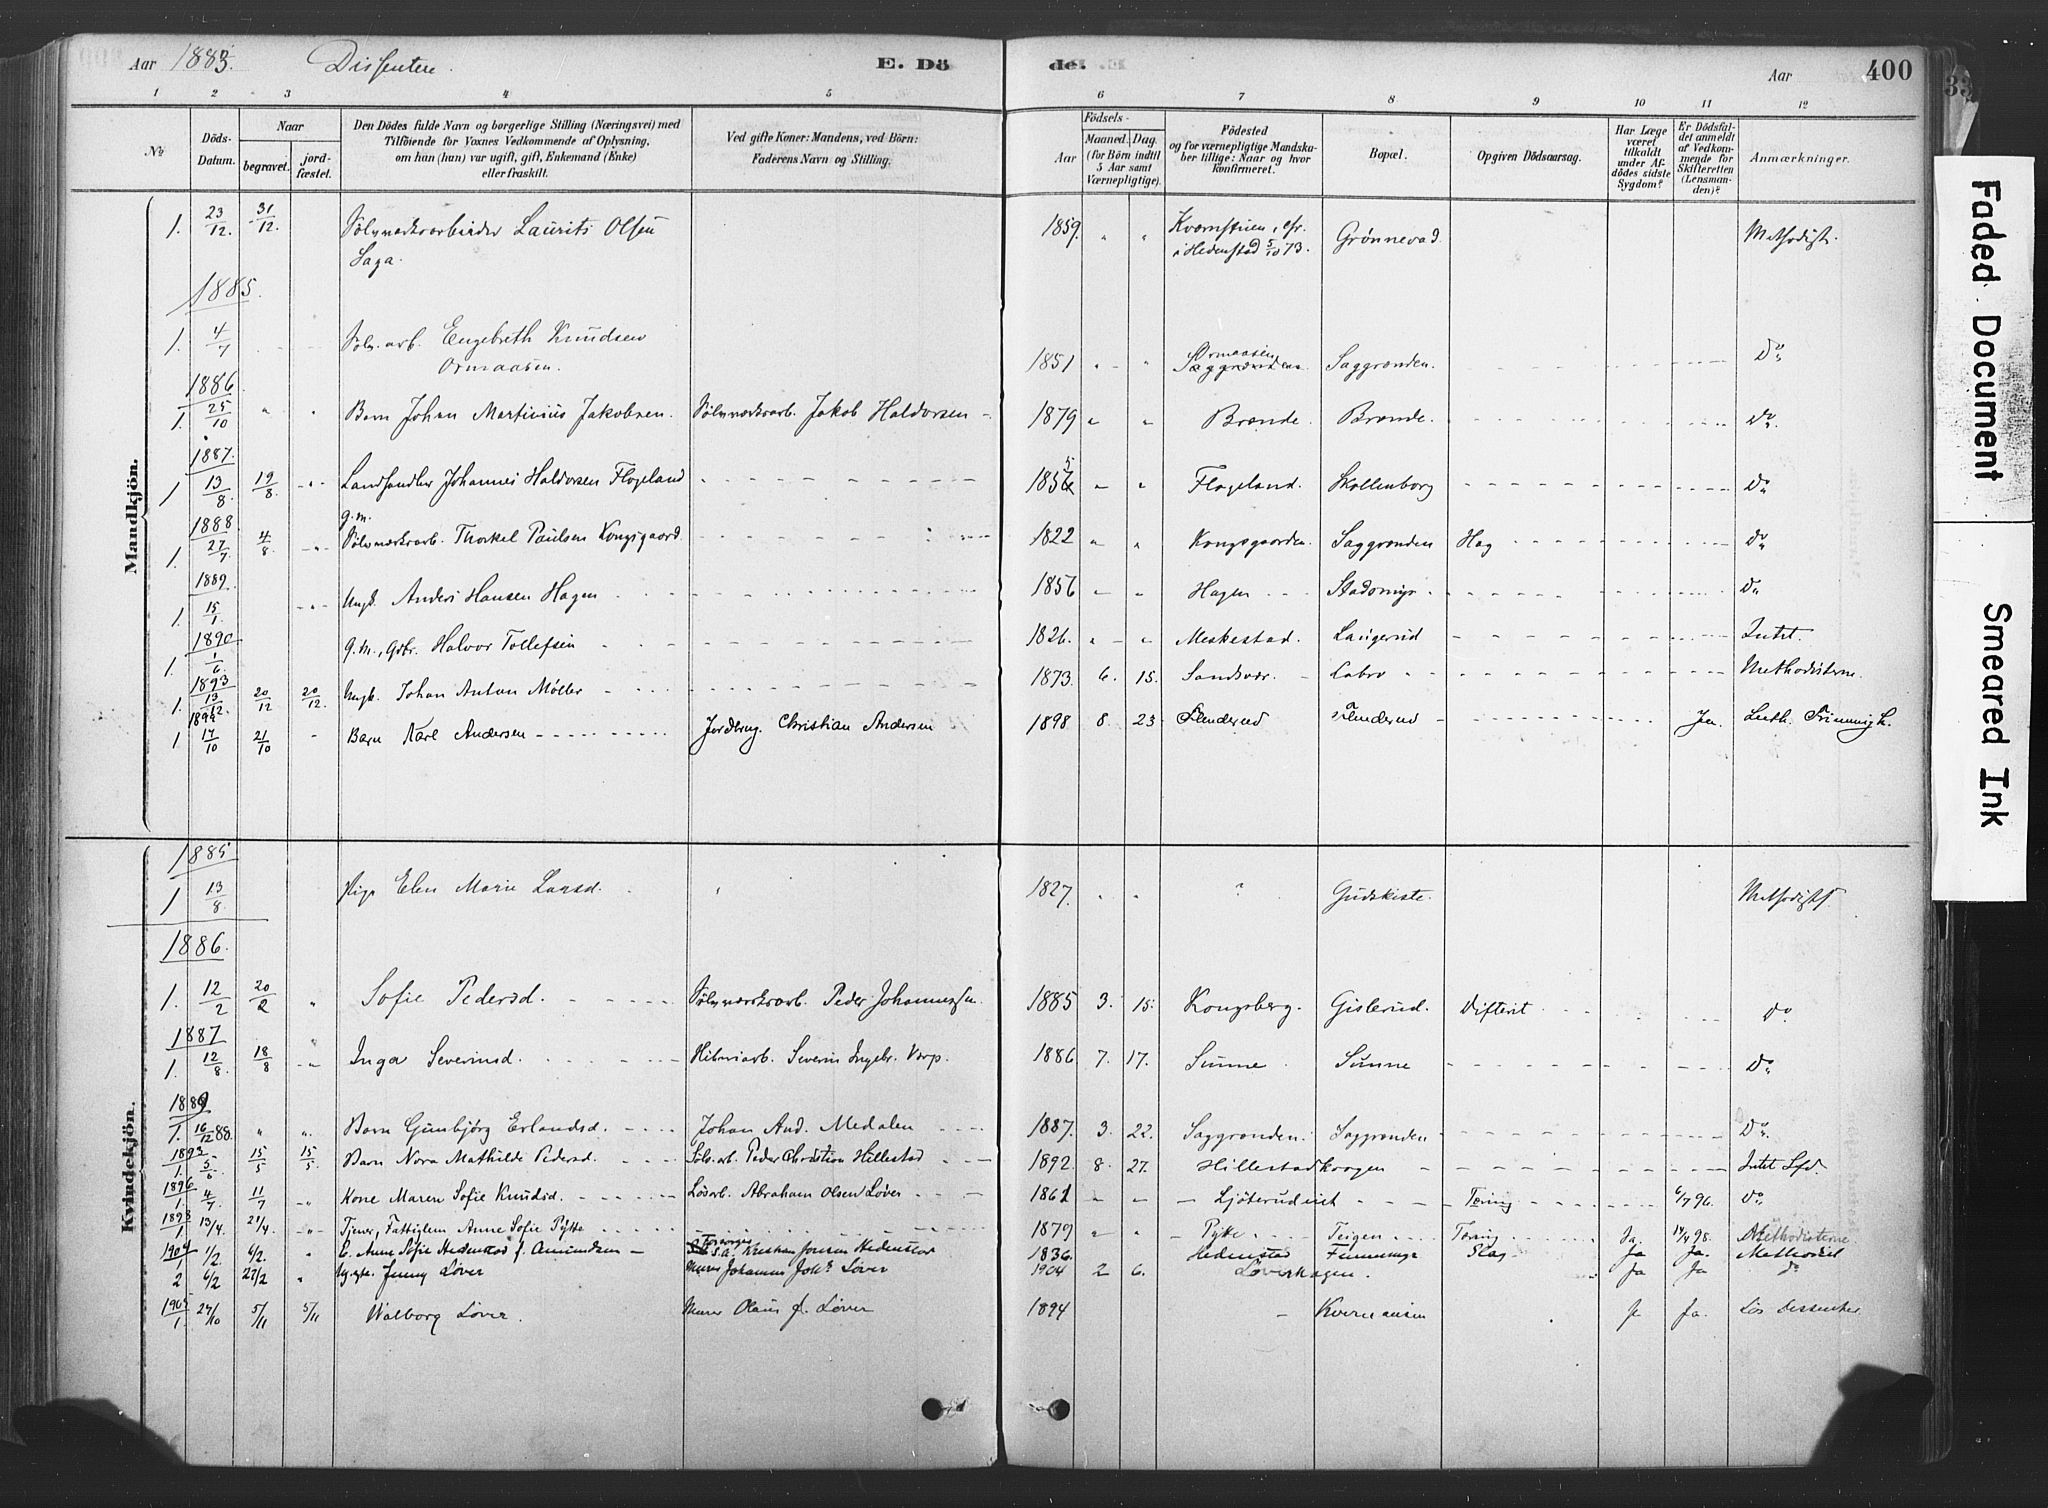 Aar 1883. Dissentere. E. Dö de. Aar 400
1 2 3 4 5 6 7 8 9 10 11 12
No
Döds-Datum.
Naar
begravet.
jordfæstet.
Den Dödes fulde Navn og borgerlige Stilling (Næringsvei) med
Tilföiende for Voxnes Vedkommende af Oplysning,
om han (hun) var ugift, gift, Enkemand (Enke)
eller fraskilt.
Ved gifte Koner: Mandens, ved Börn:
Faderens Navn og Stilling.
Födsels-
Aar
Maaned. Dag.
(for Börn indtil
5 Aar samt
Værnepligtige).
Födested
og for værnepligtige Mandskaber tillige: Naar og hvor
konfirmeret.
Bopæl.
Opgiven Dödsaarsag.
Har Læge
været
tilkaldt
under Afdödes sidste
Sygdom?
Er Dödsfaldet anmeldt
af Vedkommende for
Skifteretten
(Lensmanden)?
Anmærkninger.
Mandkjön.
1. 23/12. 31/12. Sølvværksarbeider Laurits Olsen 1859. " " Kværnstuen, cfr. Grønnevad. Methodist.
Saga. i Hedenstad 5/10 73.
1885.
1. 4/7 Sølv.arb. Engebreth Knudsen 1851 " " Ormaasen Saggrenden. Do
Ormaasen. Saggrenden
1886
1. 25/10 " " Barn Johan Martinius Jakobsen. Sølvværksarb. Jakob Haldorsen 1879 " " Brænde. Brænde. Do
1887.
1 13/8 19/8. Landhandler Johannes Haldorsen Flogeland 1856 5 " " Flogeland. Skollenborg Do
g.m.
1888
1. 27/7 4/8 Sølvværksarb. Thorkel Paulsen Kongsgaard 1822 " " Kongsgaarden. Saggrenden Do
1889.
1. 15/1. Ungk. Anders Hansen Hagen 1856 " " Hagen Stadsmyr Do
1890
1. 1/6. G.m., Gdbr. Halvor Tollefsen 1826. " " Meskestad. Langerud Intet.
1893
1. 13/12. 20/12 20/12. Ungk. Johan Anton Møller 1873. 6. 15. Sandsvær. Labro Methodisterne.
1 14/10 21/10 Barn Karl Andersen Jordbrug. Christian Andersen 1898 8 23 Ja. Luth. Frimenigh.
Kvindekjön.
1885
1 13/8. Pige Elen Marie Larsd. 1827. " " Gudskiste. Methodist.
1886.
1. 12/2 20/2 " Sofie Pedersd. Sølvværksarb. Peder Johannessen. 1885 3. 15. Kongsberg. Gislerud. Difterit Do
1887
1. 12/8. 18/8 Inga Severinsd. Severin Ingebr. Varp. 1886 7. 17. Sünne Sünne Do
1889
1. 16/12 88. " " Barn Gunbjørg Erlandsd. Johan And. Medalen 1887. 3. 22. Saggrenden. Saggrenden Do
1893
1. 5/5 15/5 15/5 Barn Nora Mathilde Pedersd. Sølv.arb. Peder Christian Hillestad 1892 8. 27. Hillestadkrogen Intet Sfd.
1896
1. 4/7. 11/7 Kone Maren Sofie Knudsd. Løsarb. Abraham Olsen Løver 1861 " " Ljøterudeiet Tæring 6/7 96. Do
1898
1. 13/4. 21/4. Tjener, Fattiglem Anne Sofie Pytte 1879 " " Pytte Teigen Tæring Ja. 14/4 98. Methodisterne
1904
1 1/2. 6/2. " E. Anne Sofie Hedenstad f. Amundsen Kristian Jonsen Hedenstad 1836. Hedenstad Slag Ja Ja. Methodist
2 6/2 22/2 " Jenny Løver Murer Johannes Johs Løver 1904 2 6. Løverhagen. Ja Ja do
1905
1. 24/10 5/11 5/11 Walborg Løver. Murer Olaus J. Løver 1894 Ja. Løs Dissenter
Faded Document
Smeared Ink